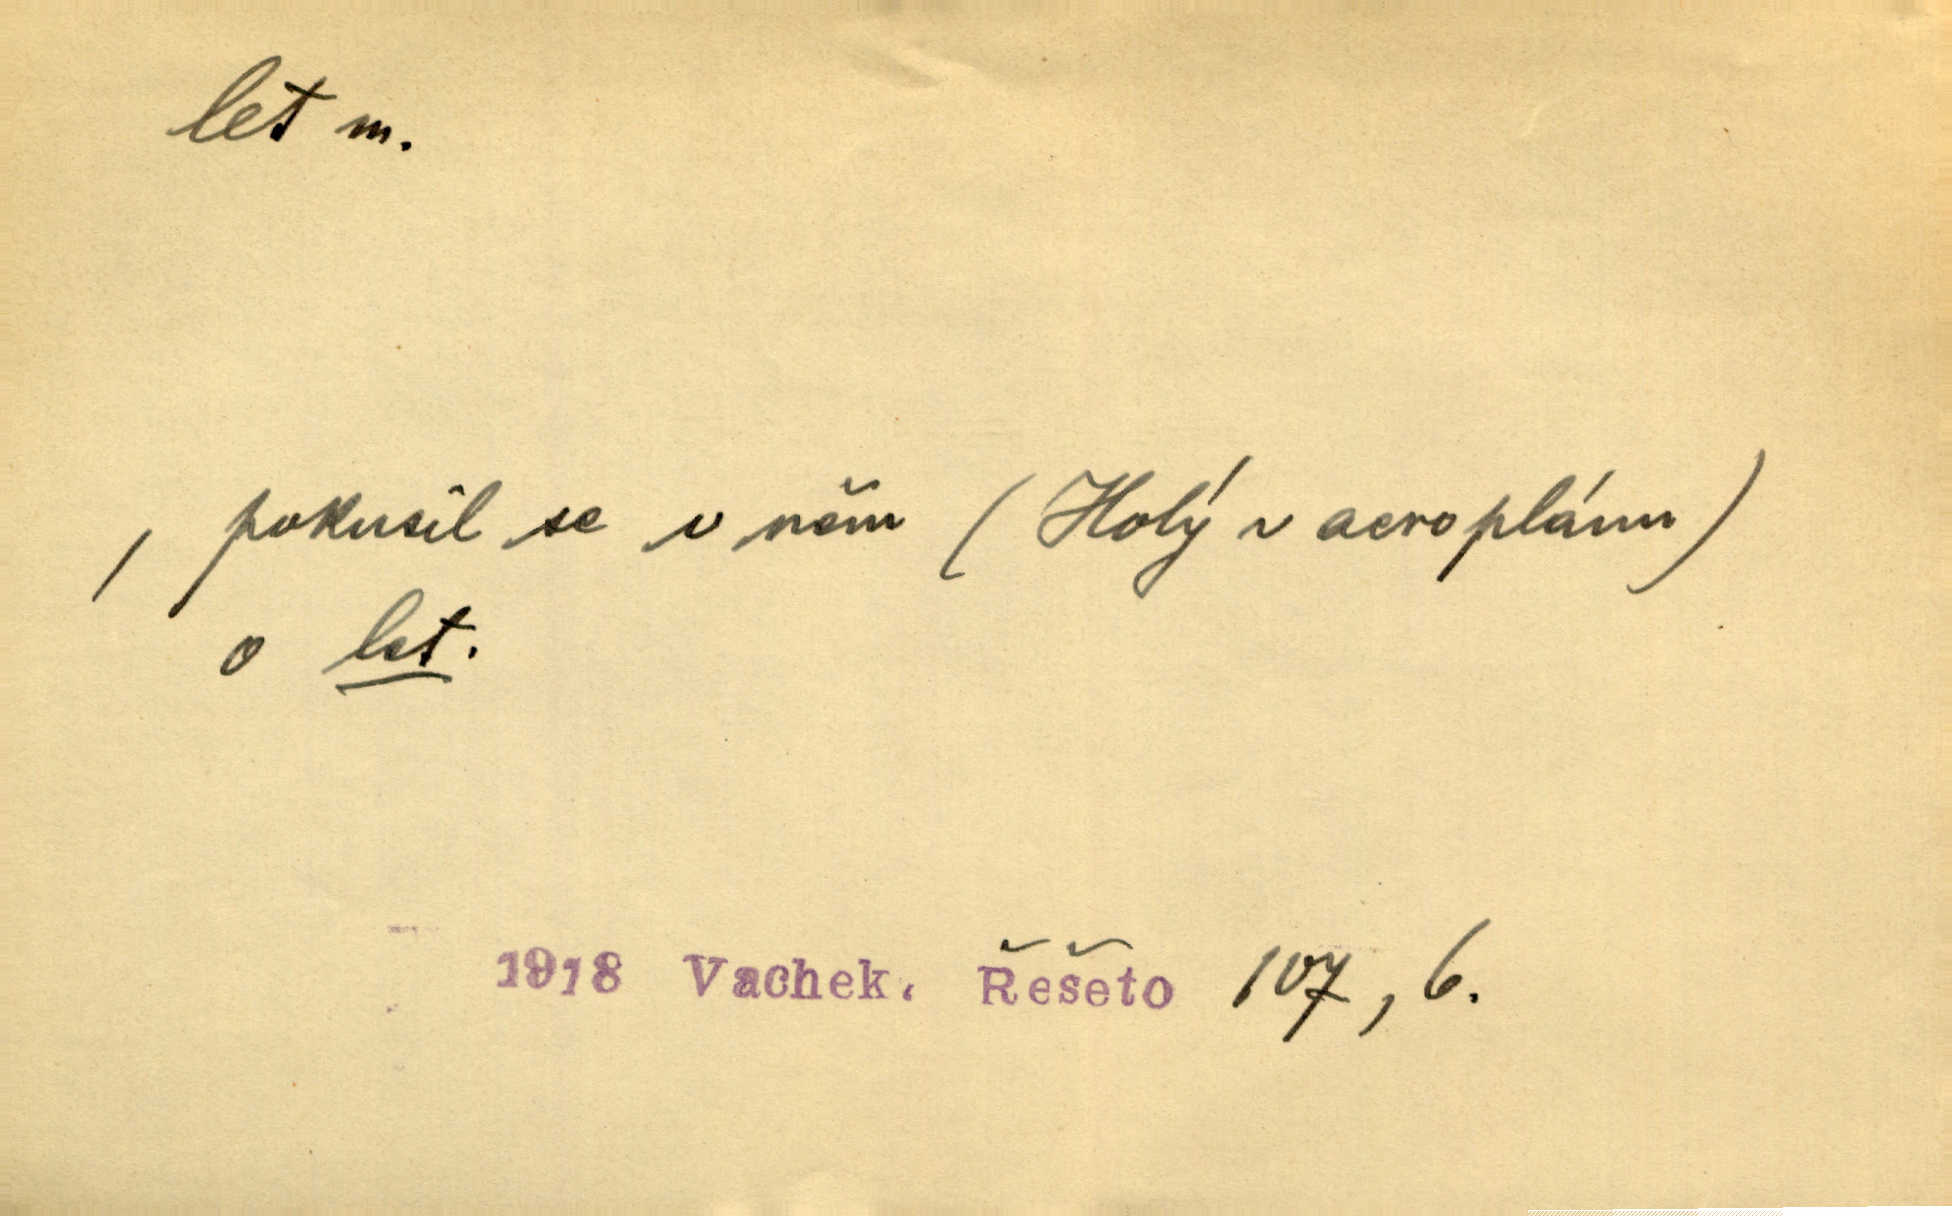 let m.
, pokusil se v něm (Holý v aeroplánu)
o let.
1918 Vachek. Řešeto 107, 6.